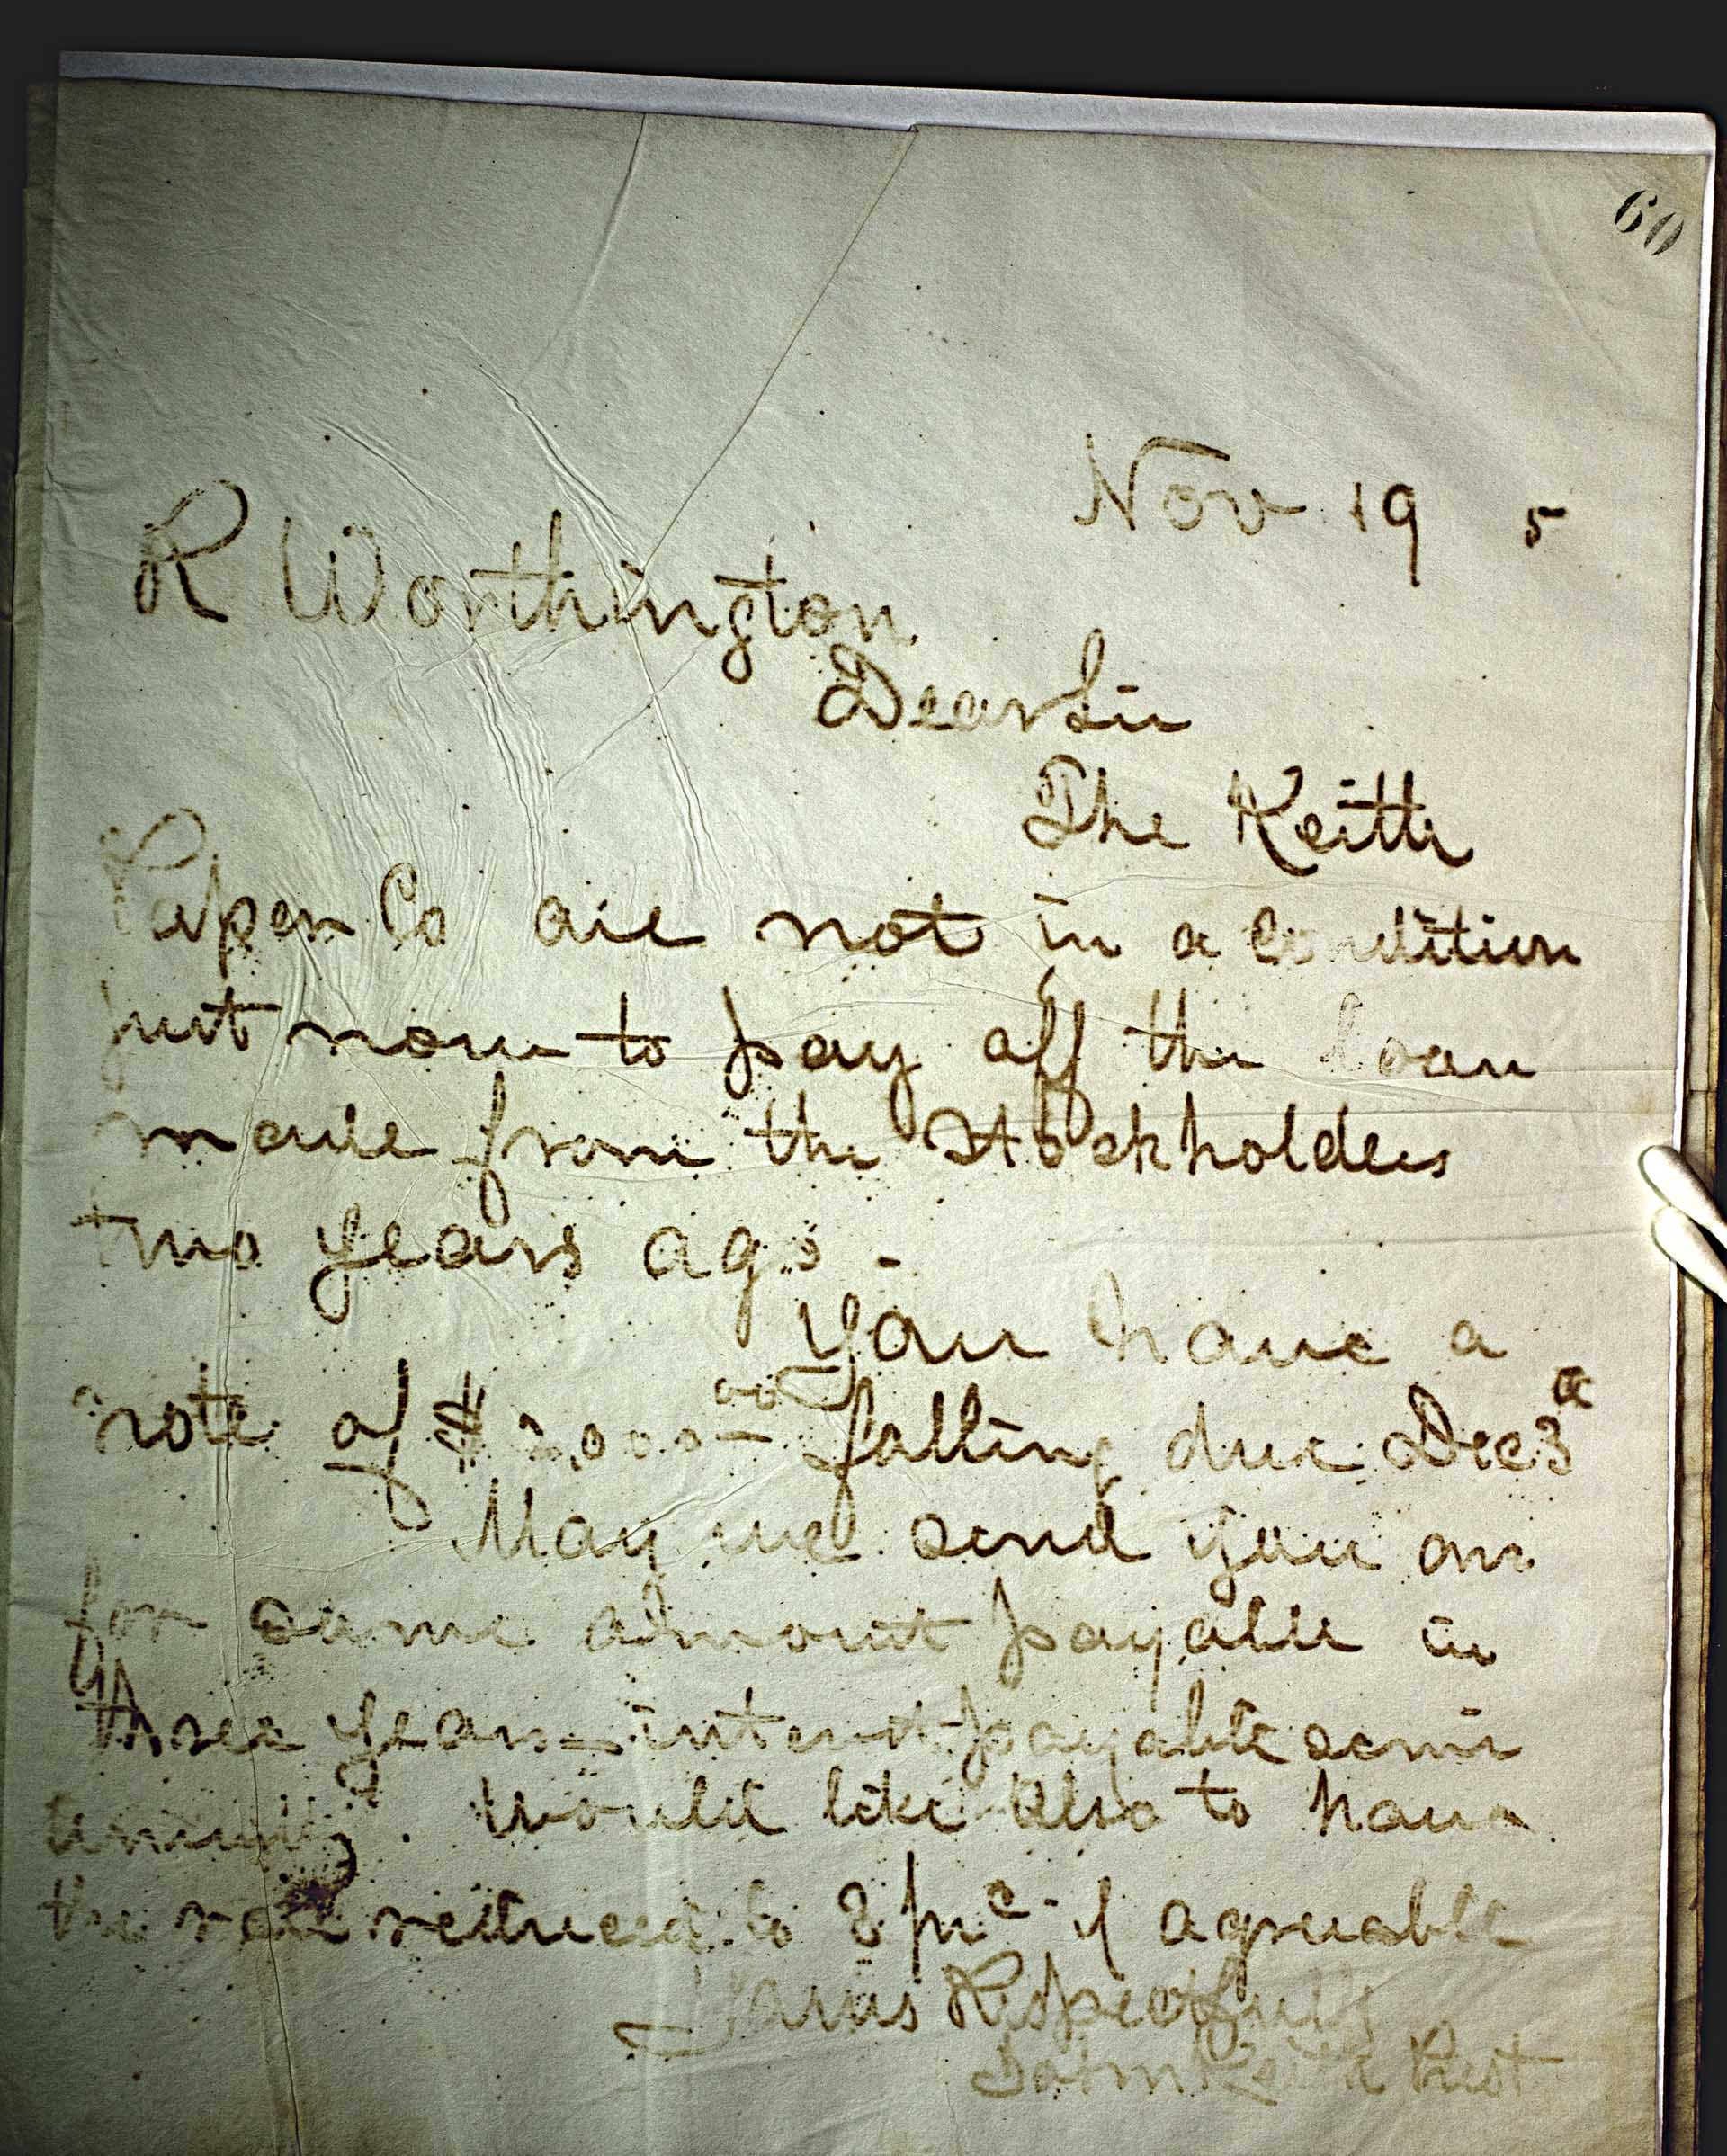 60
Nov 19 5
R Worthington
Dear Sir
The Keith
Paper Co are not in a condition
just now to pay off the loan
made from the Stockholders
two years ago -
You have a
note of $ ,000 00 falling due Dec 3
May we send you one
for same amount payable in
three years - interest payable semi
annually. Would like also to have
the rate reduced to 8 pr c if agreeable
Yours Respectfully
John Keith Prest